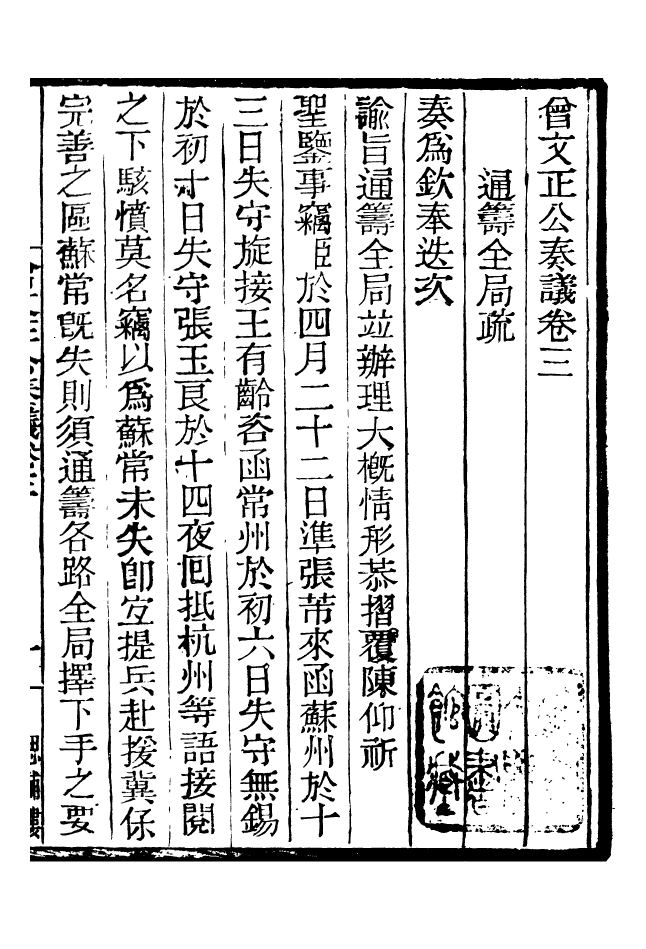 曾文正公奏議卷三
通籌全局疏
奏爲欽奉迭次
諭旨通籌全局並辦理大概情形恭摺覆陳仰祈
聖鑒事竊臣於四月二十二日準張芾來函蘇州於十
三日失守旋接王有齡咨函常州於初六日失守無錫
於初十日失守張玉良於十四夜回抵杭州等語接閱
之下駭憤莫名竊以爲蘇常未失卽宜提兵赴援冀保
完善之區蘇常旣失則須通籌各路全局擇下手之要